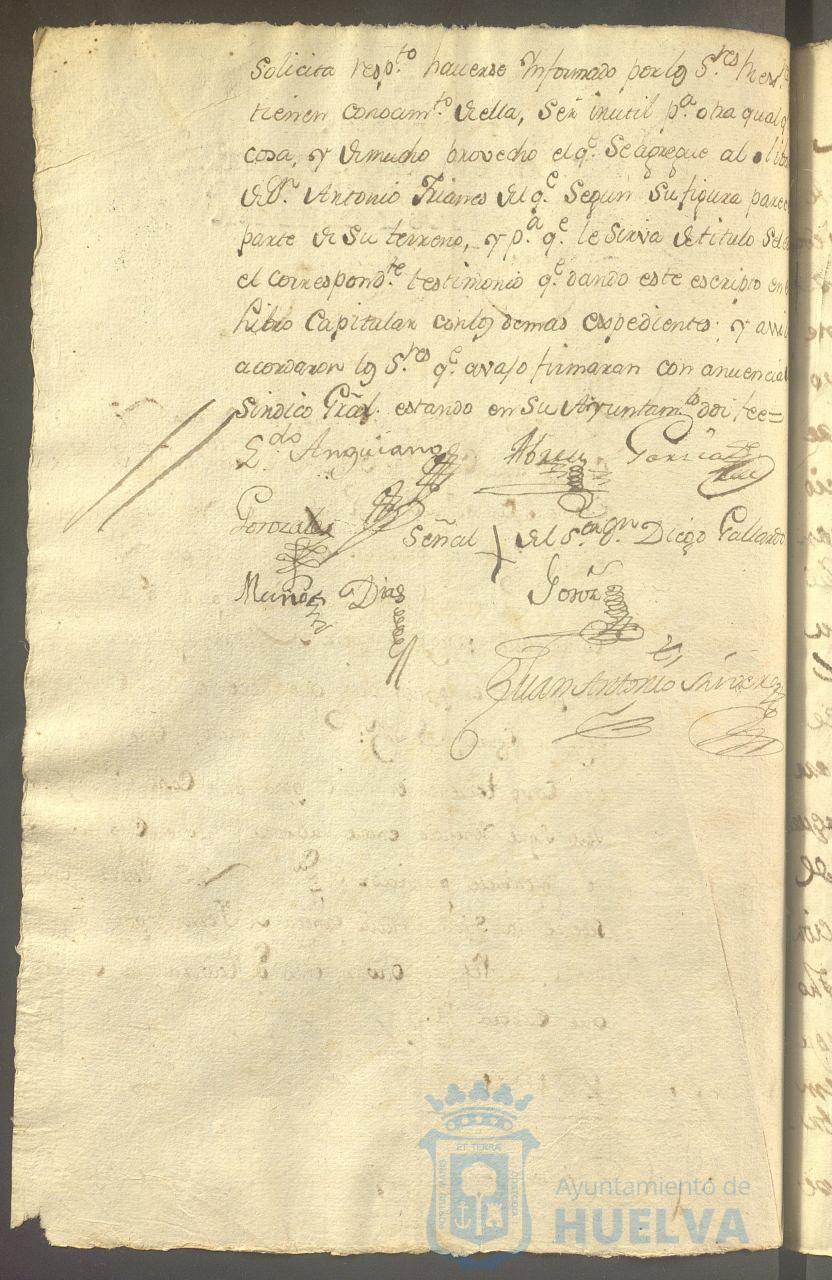 solicita resp.to hauerse Informado por los S.res
tienen conocim.to de ella, Ser inutil p.a otra qual q
cosa, y de mucho provecho el q.e Se agregue al
de D.n Antonio Trianes del q.e Segun Su figura parec
parte de Su terreno, y p.a q.e le Sirva de titulo Sele
el correspond.te testimonio q.e dando este escripto en
Libro Capitular con los demas expedientes; y assi
acordaron los S.res q.e avajo firmaran con anuencia
Sindico Gral. estando en Su Ayuntam.to doi fee=
L.do Anguiano Abreu Garcia
Gonzales Señal del S.or Ag.n Diego Gallardo
Muñoz Dias Gonz
Juan Antonio
ET TERRA
PORTUS MARIS
CUSTODIA
Ayuntamiento de
HUELVA